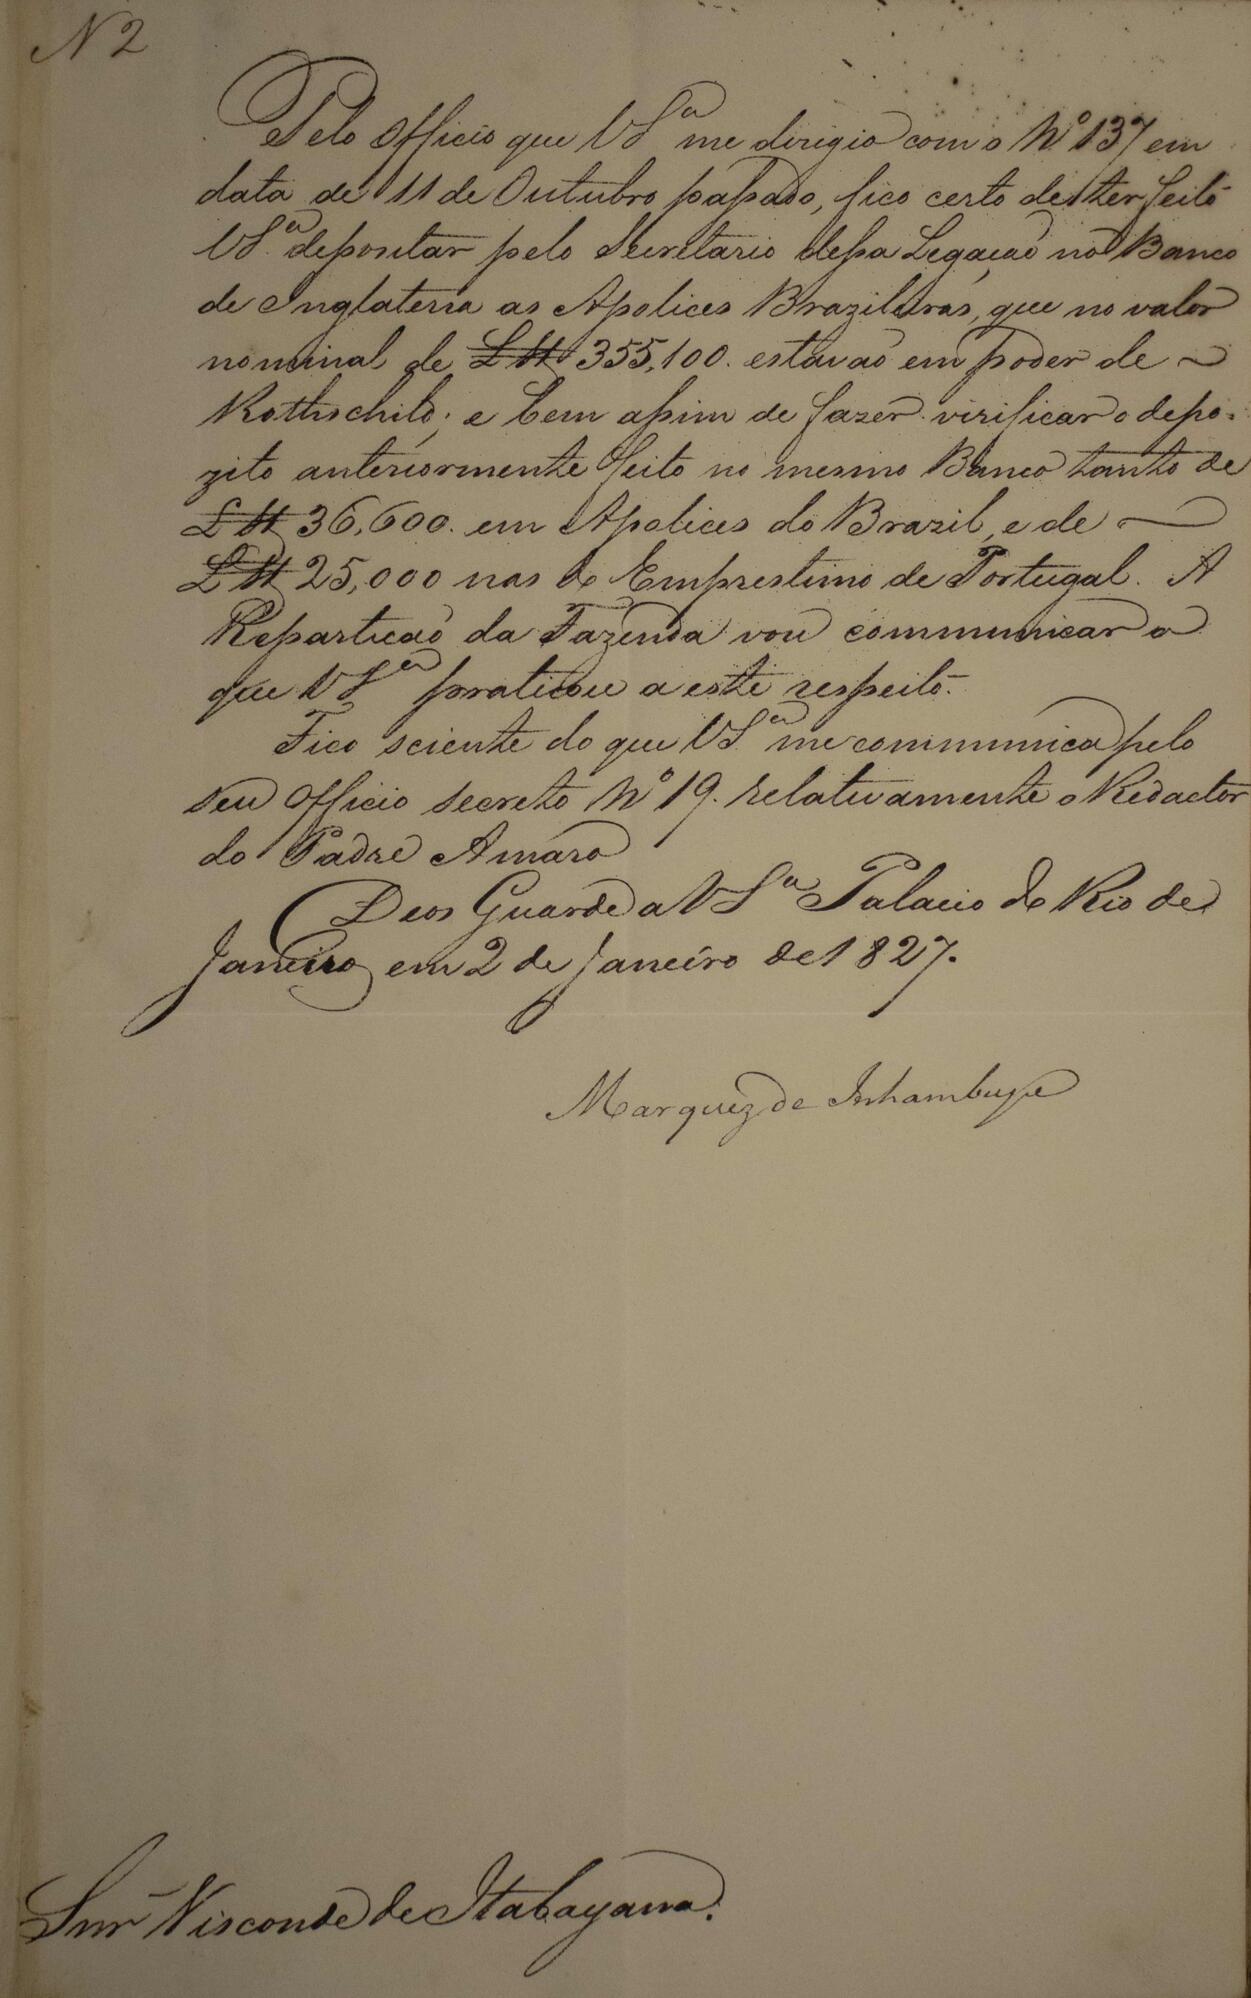 N 2
Pelo Officio que VS.ª me dirigio com o Nº 137 em
data de 11 de Outubro passado, fico certo de ter feito
VS.ª depositar pelo Secretario dessa Legação no Banco
de Inglaterra as Apolices Brazileiras, que no valor
nominal de L St 355,100. estavaõ em poder de
Rothschild; e bem assim de fazer virificar o depo-
zito anteriormente feito no mesmo Banco tanto de
L St 36,600. em Apolices do Brazil, e de
L St 25,000 nas do Emprestimo de Portugal. A
Repartiçaõ da Fazenda vou communicar o
que VSª praticou a este respeito.
Fico sciente do que VS.ª me communica pelo
seu Officio secreto Nº 19. relativamente o Redactor
do Padre Amaro
Deos Guarde a VSª Palacio do Rio de
Janeiro em 2 de Janeiro de 1827.
Marquez de Inhambupe
Snr Visconde de Itabayana.